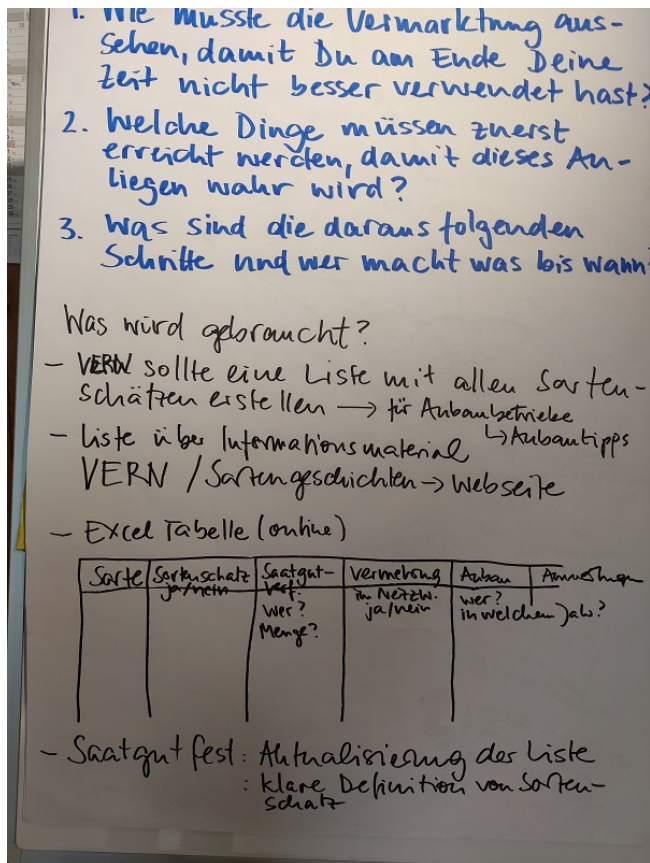 1. Wie müsste die Vermarktung aus-
sehen, damit Du am Ende Deine
Zeit nicht besser verwendet hast?
2. Welche Dinge müssen zuerst
erreicht werden, damit dieses An-
liegen wahr wird?
3. Was sind die daraus folgenden
Schritte und wer macht was bis wann
Was wird gebraucht?
- VERN sollte eine Liste mit allen Sorten-
schätzen erstellen → für Anbaubetriebe
- Liste über Informationsmaterial ↳ Anbautipps
VERN / Sortengeschichten → Webseite
- Excel Tabelle (online)
Sorte Sortenschatz Saatgut- Vermehrung Anbau Anmerkungen
ja/nein verf. in Netzw. wer?
wer? ja/nein in welchem Jahr?
Menge?
- Saatgutfest: Aktualisierung der Liste
: klare Definition von Sorten-
schatz